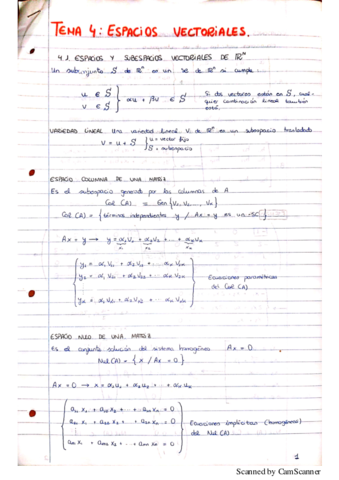 TEMA 4: ESPACIOS VECTORIALES.
4.1 ESPACIOS Y SUBESPACIOS VECTORIALES DE ℝⁿ
Un subconjunto S de ℝⁿ es un se de ℝⁿ si cumple:
u ∈ S
v ∈ S } αu + βv ∈ S
Si dos vectores están en S, cualquier combinación lineal también está.
VARIEDAD LINEAL Una variedad lineal V de ℝⁿ es un subespacio trasladado
V = u + S { u = vector fijo
S = subespacio
ESPACIO COLUMNA DE UNA MATRIZ
Es el subespacio generado por las columnas de A
Col (A) = Gen {V₁, V₂, ..., Vₙ}
Col (A) = { términos independientes y / Ax = y es un SC }
Ax = y → y = α₁V₁ + α₂V₂ + ... + αₙVₙ
y₁ = α₁V₁₁ + α₂V₁₂ + ... + αₙV₁ₙ
y₂ = α₁V₂₁ + α₂V₂₂ + ... + αₙV₂ₙ
Ecuaciones paramétricas
del Col (A)
ESPACIO NULO DE UNA MATRIZ
Es el conjunto solución del sistema homogéneo Ax = 0
Nul (A) = { x / Ax = 0 }
Ax = 0 → x = α₁u₁ + α₂u₂ + ... +
a₁₁ x₁ + a₁₂ x₂ + ... + a₁ₙ xₙ = 0
a₂₁ x₁ + a₂₂ x₂ + ... + a₂ₙ xₙ = 0
Ecuaciones implícitas (homogéneas)
del Nul (A)
1
Scanned by CamScanner